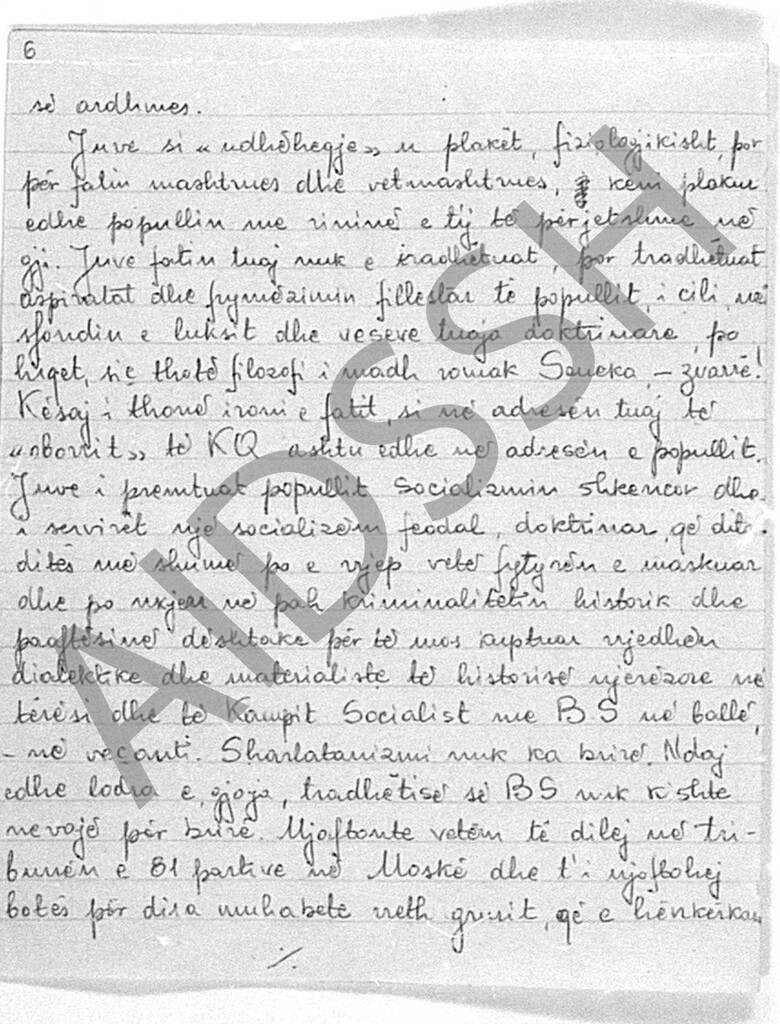 6
së ardhmes.
Juve si «udhëheqje» u plakët, fiziologjikisht, por
për fatin mashtrues dhe vetmashtrues, keni plakur
edhe popullin me rininë e tij të përjetshme në
gji. Juve fatin tuaj nuk e tradhëtuat, por tradhëtuat
aspiratat dhe frymëzimin fillestar të popullit, i cili, në
sfondin e luksit dhe veseve tuaja doktrinare, po
hiqet, siç thotë filozofi i madh romak Seneka, – zvarrë!
Kësaj i thonë ironi e fatit, si në adresën tuaj të
«oborrit» të KQ ashtu edhe në adresën e popullit.
Juve i premtuat popullit Socializmin shkencor dhe
i servirët një socializëm feodal, doktrinar, që dita-
ditës më shumë po e vjep vetë fytyrën e maskuar
dhe po nxjerr në pah kriminalitetin historik dhe
paaftësinë dështake për të mos kuptuar rrjedhën
dialektike dhe materialiste të historisë njerëzore në
tërësi dhe të Kampit Socialist me BS në ballë,
– në veçanti. Sharlatanizmi nuk ka brirë. Ndaj
edhe lodra e, gjoja, tradhëtisë së BS nuk kishte
nevojë për brirë. Mjaftonte vetëm të dilej në tri-
bunën e 81 partive në Moskë dhe t'i njoftohej
botës për disa muhabete rreth grurit, që e hënkërkan
./.
AIDSSH